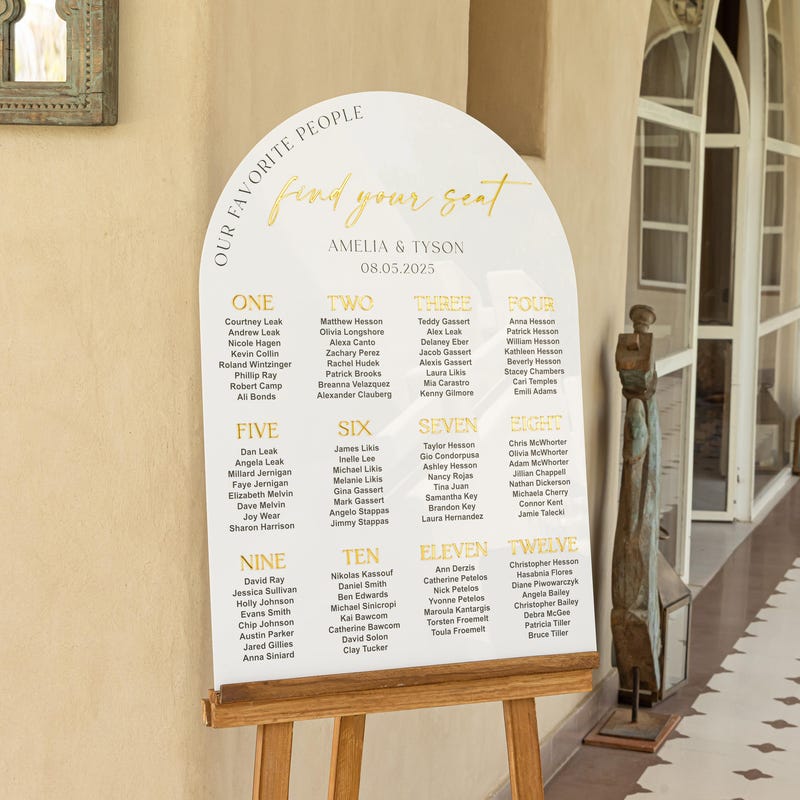 OUR FAVORITE PEOPLE
find your seat
AMELIA & TYSON
08.05.2025
ONE
Courtney Leak
Andrew Leak
Nicole Hagen
Kevin Collin
Roland Wintzinger
Phillip Ray
Robert Camp
Ali Bonds
TWO
Matthew Hesson
Olivia Longshore
Alexa Canto
Zachary Perez
Rachel Hudek
Patrick Brooks
Breanna Velazquez
Alexander Clauberg
THREE
Teddy Gassert
Alex Leak
Delaney Eber
Jacob Gassert
Alexis Gassert
Laura Likis
Mia Carastro
Kenny Gilmore
FOUR
Anna Hesson
Patrick Hesson
William Hesson
Kathleen Hesson
Beverly Hesson
Stacey Chambers
Cari Temples
Emili Adams
FIVE
Dan Leak
Angela Leak
Millard Jernigan
Faye Jernigan
Elizabeth Melvin
Dave Melvin
Joy Wear
Sharon Harrison
SIX
James Likis
Inelle Lee
Michael Likis
Melanie Likis
Gina Gassert
Mark Gassert
Angelo Stappas
Jimmy Stappas
SEVEN
Taylor Hesson
Gio Condorpusa
Ashley Hesson
Nancy Rojas
Tina Juan
Samantha Key
Brandon Key
Laura Hernandez
EIGHT
Chris McWhorter
Olivia McWhorter
Adam McWhorter
Jillian Chappell
Nathan Dickerson
Michaela Cherry
Connor Kent
Jamie Talecki
NINE
David Ray
Jessica Sullivan
Holly Johnson
Evans Smith
Chip Johnson
Austin Parker
Jared Gillies
Anna Siniard
TEN
Nikolas Kassouf
Daniel Smith
Ben Edwards
Michael Sinicropi
Kai Bawcom
Catherine Bawcom
David Solon
Clay Tucker
ELEVEN
Ann Derzis
Catherine Petelos
Nick Petelos
Yvonne Petelos
Maroula Kantargis
Torsten Froemelt
Toula Froemelt
TWELVE
Christopher Hesson
Hasabnia Flores
Diane Piwowarczyk
Angela Bailey
Christopher Bailey
Debra McGee
Patricia Tiller
Bruce Tiller